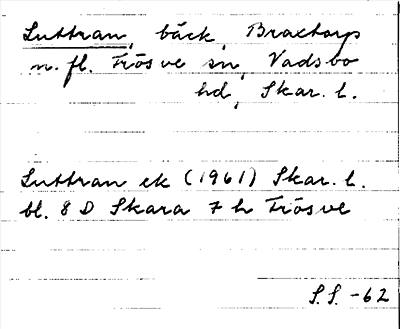 Luttran, bäck, Braxtorps
m. fl. Frösve sn, Vadsbo
hd, Skar. l.
Luttran ek (1961) Skar. l.
bl. 8 D Skara 7 h Frösve
S.S. -62